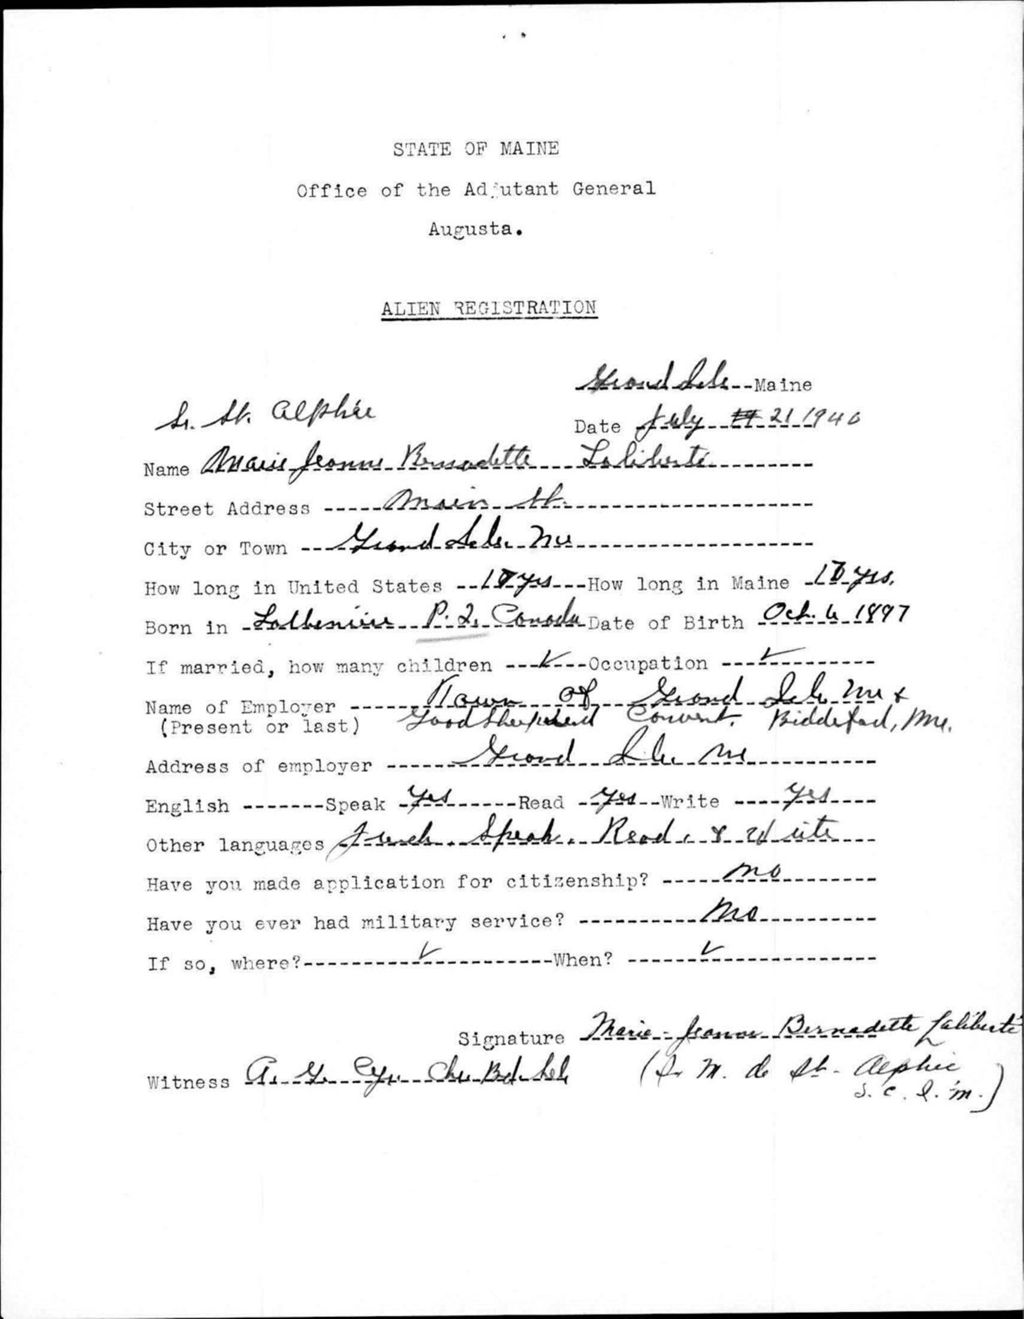 STATE OF MAINE
Office of the Adjutant General
Augusta.
ALIEN REGISTRATION
Grand Isle--Maine
Sr. St. Alphée
Date July 21 1940
Name Marie Jeanne Bernadette Laliberté
Street Address Main St.
City or Town Grand Isle Me
How long in United States yrs How long in Maine yrs.
Born in P. Q. Canada Date of Birth Oct. 6 1897
If married, how many children ✓ Occupation ✓
Name of Employer Town of Grand Isle Me &
(Present or last) Good Shepherd Convent, Biddeford, Me.
Address of employer Grand Isle Me
English Speak Yes Read Yes Write Yes
Other languages French. Speak. Read, & Write
Have you made application for citizenship? No
Have you ever had military service? No
If so, where? ✓ When? ✓
Signature Marie-Jeanne Bernadette Laliberté
Witness A. G. Cyr
(Sr M. de St-Alphée
S.C.I.M.)